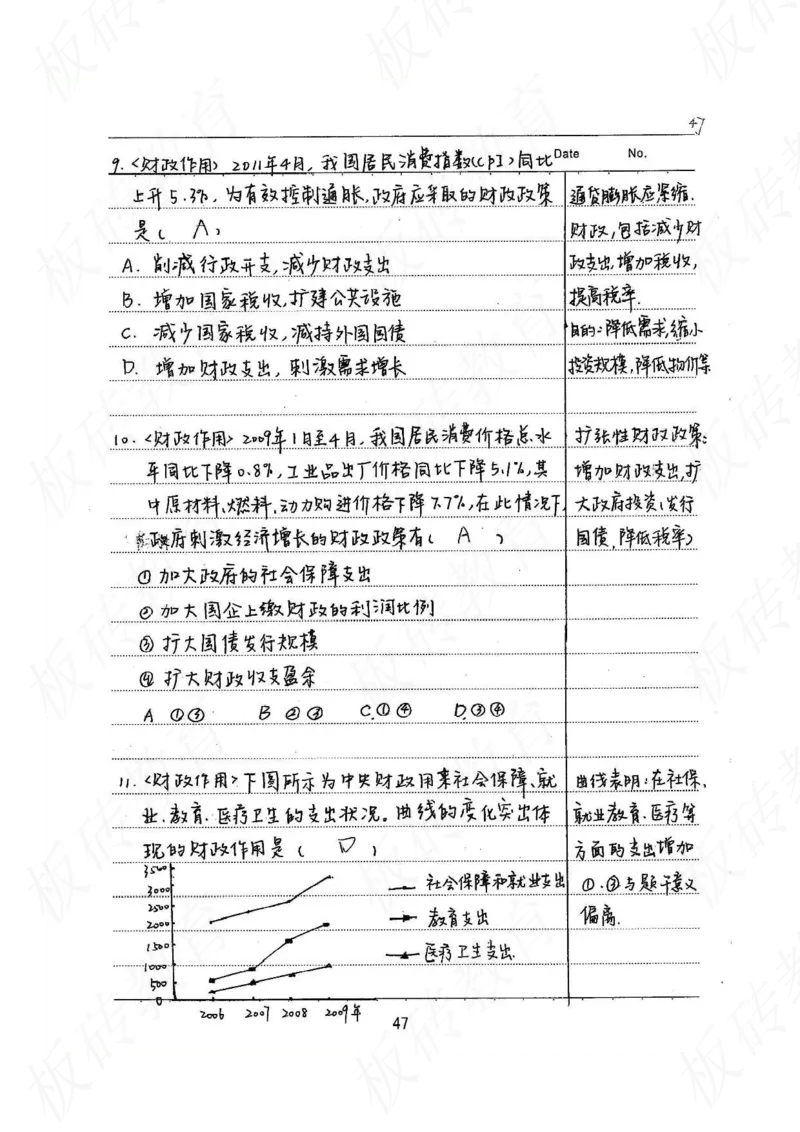 47
Date No.
9.〈财政作用〉2011年4月,我国居民消费指数(CPI)同比
上升5.3%,为有效控制通胀,政府应采取的财政政策
是( A )
A. 削减行政开支,减少财政支出
B. 增加国家税收,扩建公共设施
C. 减少国家税收,减持外国国债
D. 增加财政支出,刺激需求增长
通货膨胀应紧缩
财政,包括减少财
政支出,增加税收,
提高税率.
目的:降低需求,缩小
投资规模,降低物价等
10.〈财政作用〉2009年1月至4月,我国居民消费价格总水
平同比下降0.8%,工业品出厂价格同比下降5.1%,其
中原材料、燃料、动力购进价格下降7.7%,在此情况下,
政府刺激经济增长的财政政策有( A )
① 加大政府的社会保障支出
② 加大国企上缴财政的利润比例
③ 扩大国债发行规模
④ 扩大财政收支盈余
A ①③ B ②③ C.①④ D.③④
扩张性财政政策:
增加财政支出,扩
大政府投资(发行
国债,降低税率)
11.〈财政作用〉下图所示为中央财政用来社会保障、就
业、教育、医疗卫生的支出状况。曲线的变化突出体
现的财政作用是( D )
曲线表明:在社保、
就业教育、医疗等
方面的支出增加
①.③与题干意义
偏离.
3500
3000
2500
2000
1500
1000
500
0
2006 2007 2008 2009年
社会保障和就业支出
教育支出
医疗卫生支出.
47
板砖教育